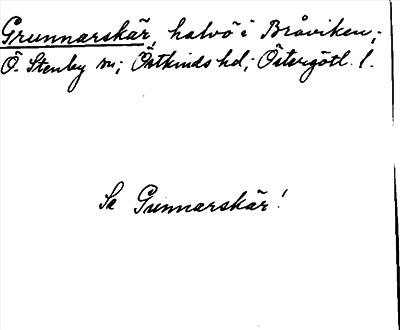 Grunnarskär, halvö i Bråviken;
Ö. Stenby sn; Östkinds hd; Östergötl. l.
Se Gunnarskär!